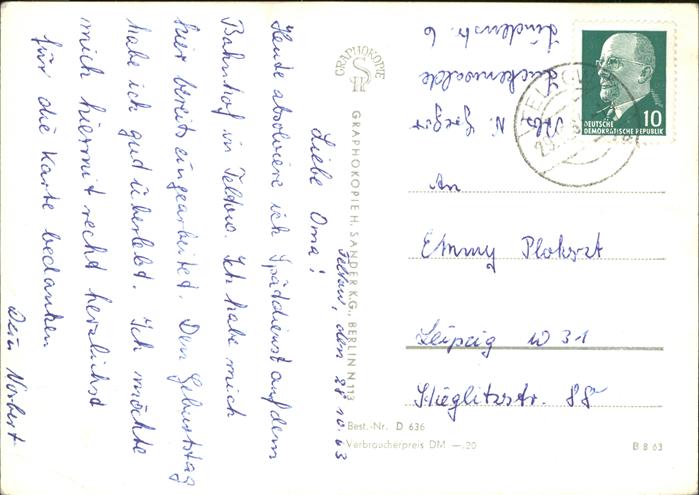 Teltow, den 28.10.63
Liebe Oma!
Heute absolviere ich Spätdienst auf dem
Bahnhof in Teltow. Ich habe mich
hier bereits eingearbeitet. Den Geburtstag
habe ich gut überlebt. Ich möchte
mich hiermit recht herzlichst
für die Karte bedanken
Dein Norbert
GRAPHOKOPIE
GRAPHOKOPIE H. SANDER K.G., BERLIN N 113
Abs. N.
Luckenwalde
Lindenstr. 6
10
DEUTSCHE
DEMOKRATISCHE REPUBLIK
An
Emmy
Leipzig W 31
Stieglitzstr. 88
Best.-Nr. D 636
Verbraucherpreis DM —.20
B 8 63